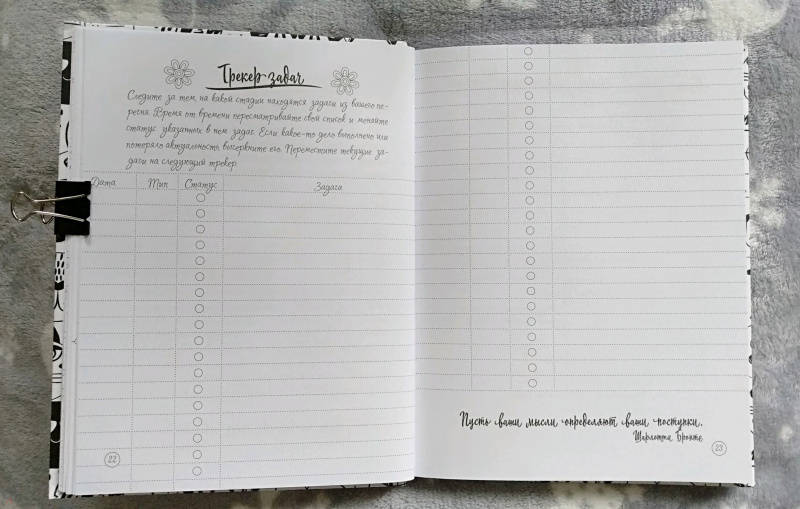 Трекер задач
Следите за тем, на какой стадии находятся задачи из вашего пе-
речня. Время от времени пересматривайте свой список и меняйте
статус указанных в нем задач. Если какое-то дело выполнено или
потеряло актуальность, вычеркните его. Переместите текущие за-
дачи на следующий трекер.
Дата Тип Статус Задача
22
Пусть ваши мысли определяют ваши поступки.
Шарлотта Бронте
23